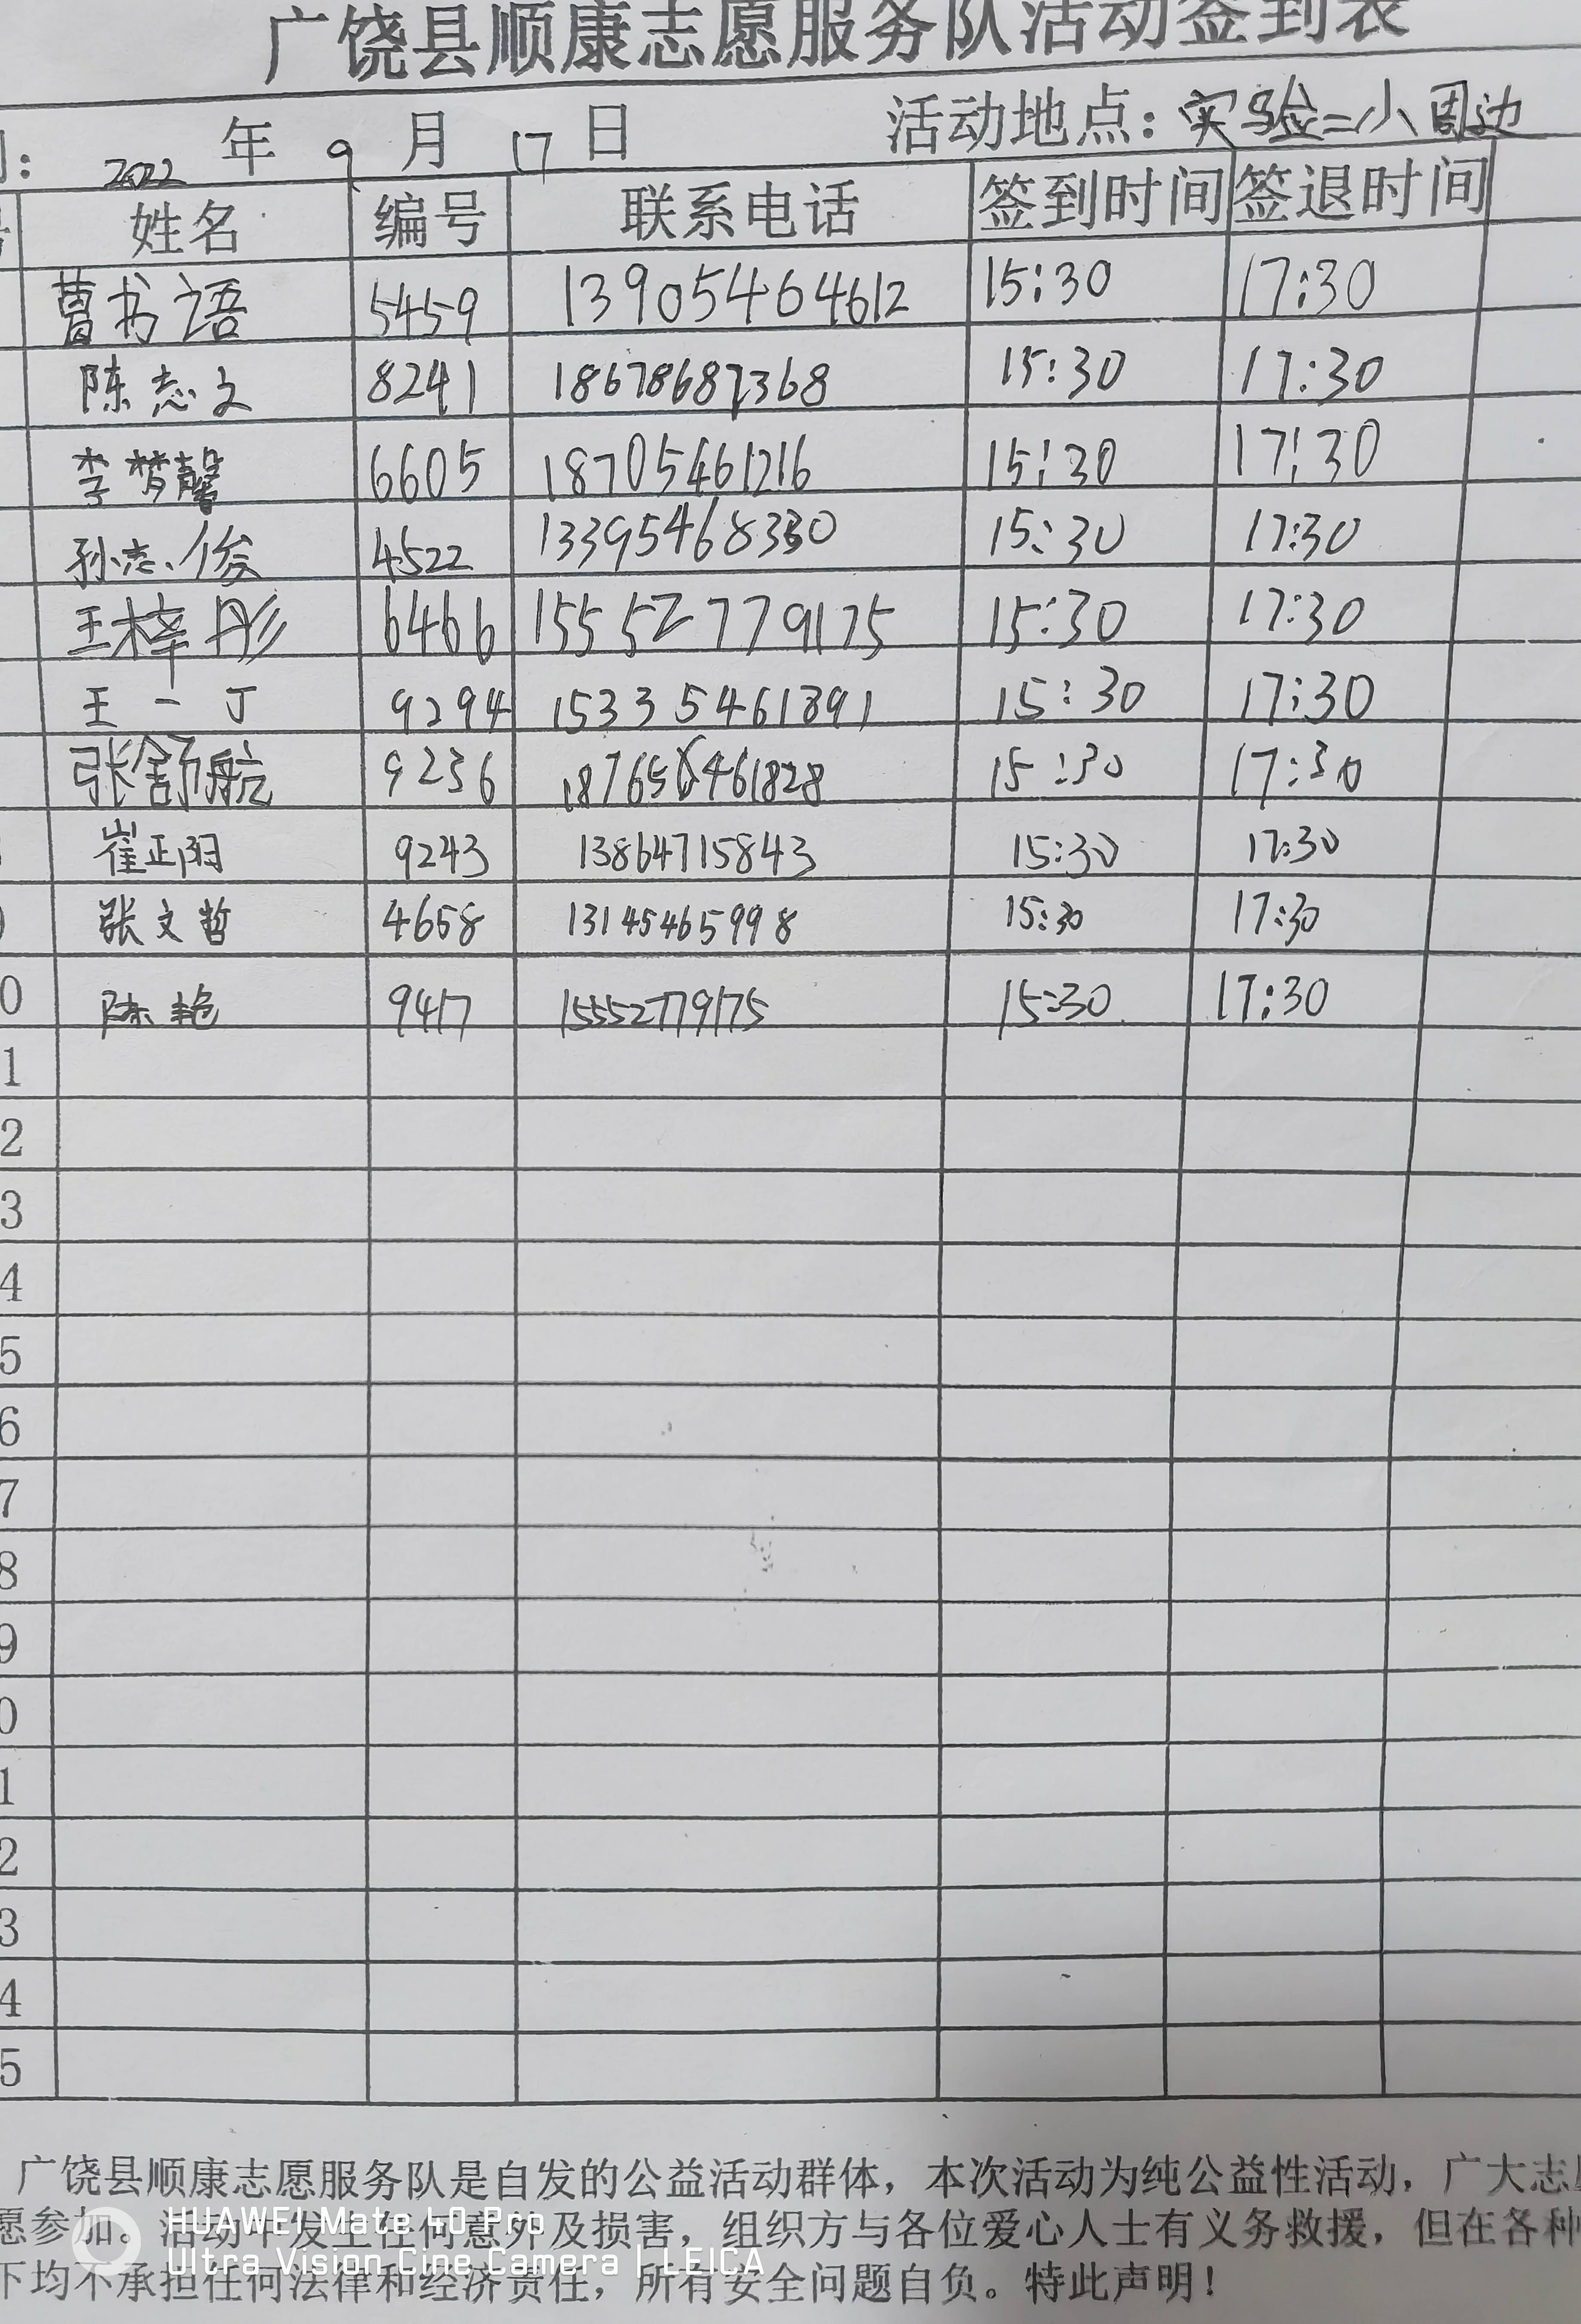 广饶县顺康志愿服务队活动签到表
: 2022 年 9 月 17 日 活动地点: 实验二小周边
姓名 编号 联系电话 签到时间 签退时间
曹书语 5459 13905464612 15:30 17:30
陈志文 8241 18678687368 15:30 17:30
李梦馨 6605 18705461216 15:30 17:30
孙志俊 4522 13395468330 15:30 17:30
王梓彤 6466 15552779175 15:30 17:30
王一丁 9294 15335461891 15:30 17:30
张舒航 9236 15:30 17:30
崔正阳 9243 13864715843 15:30 17:30
张文哲 4658 13145465998 15:30 17:30
0 陈艳 9417 15552779175 15:30 17:30
1
2
3
4
5
6
7
8
9
0
1
2
3
4
5
广饶县顺康志愿服务队是自发的公益活动群体，本次活动为纯公益性活动，广大志
愿参加。活动中发生任何意外及损害，组织方与各位爱心人士有义务救援，但在各种
下均不承担任何法律和经济责任，所有安全问题自负。特此声明！
HUAWEI Mate 40 Pro
Ultra Vision Cine Camera | LEICA